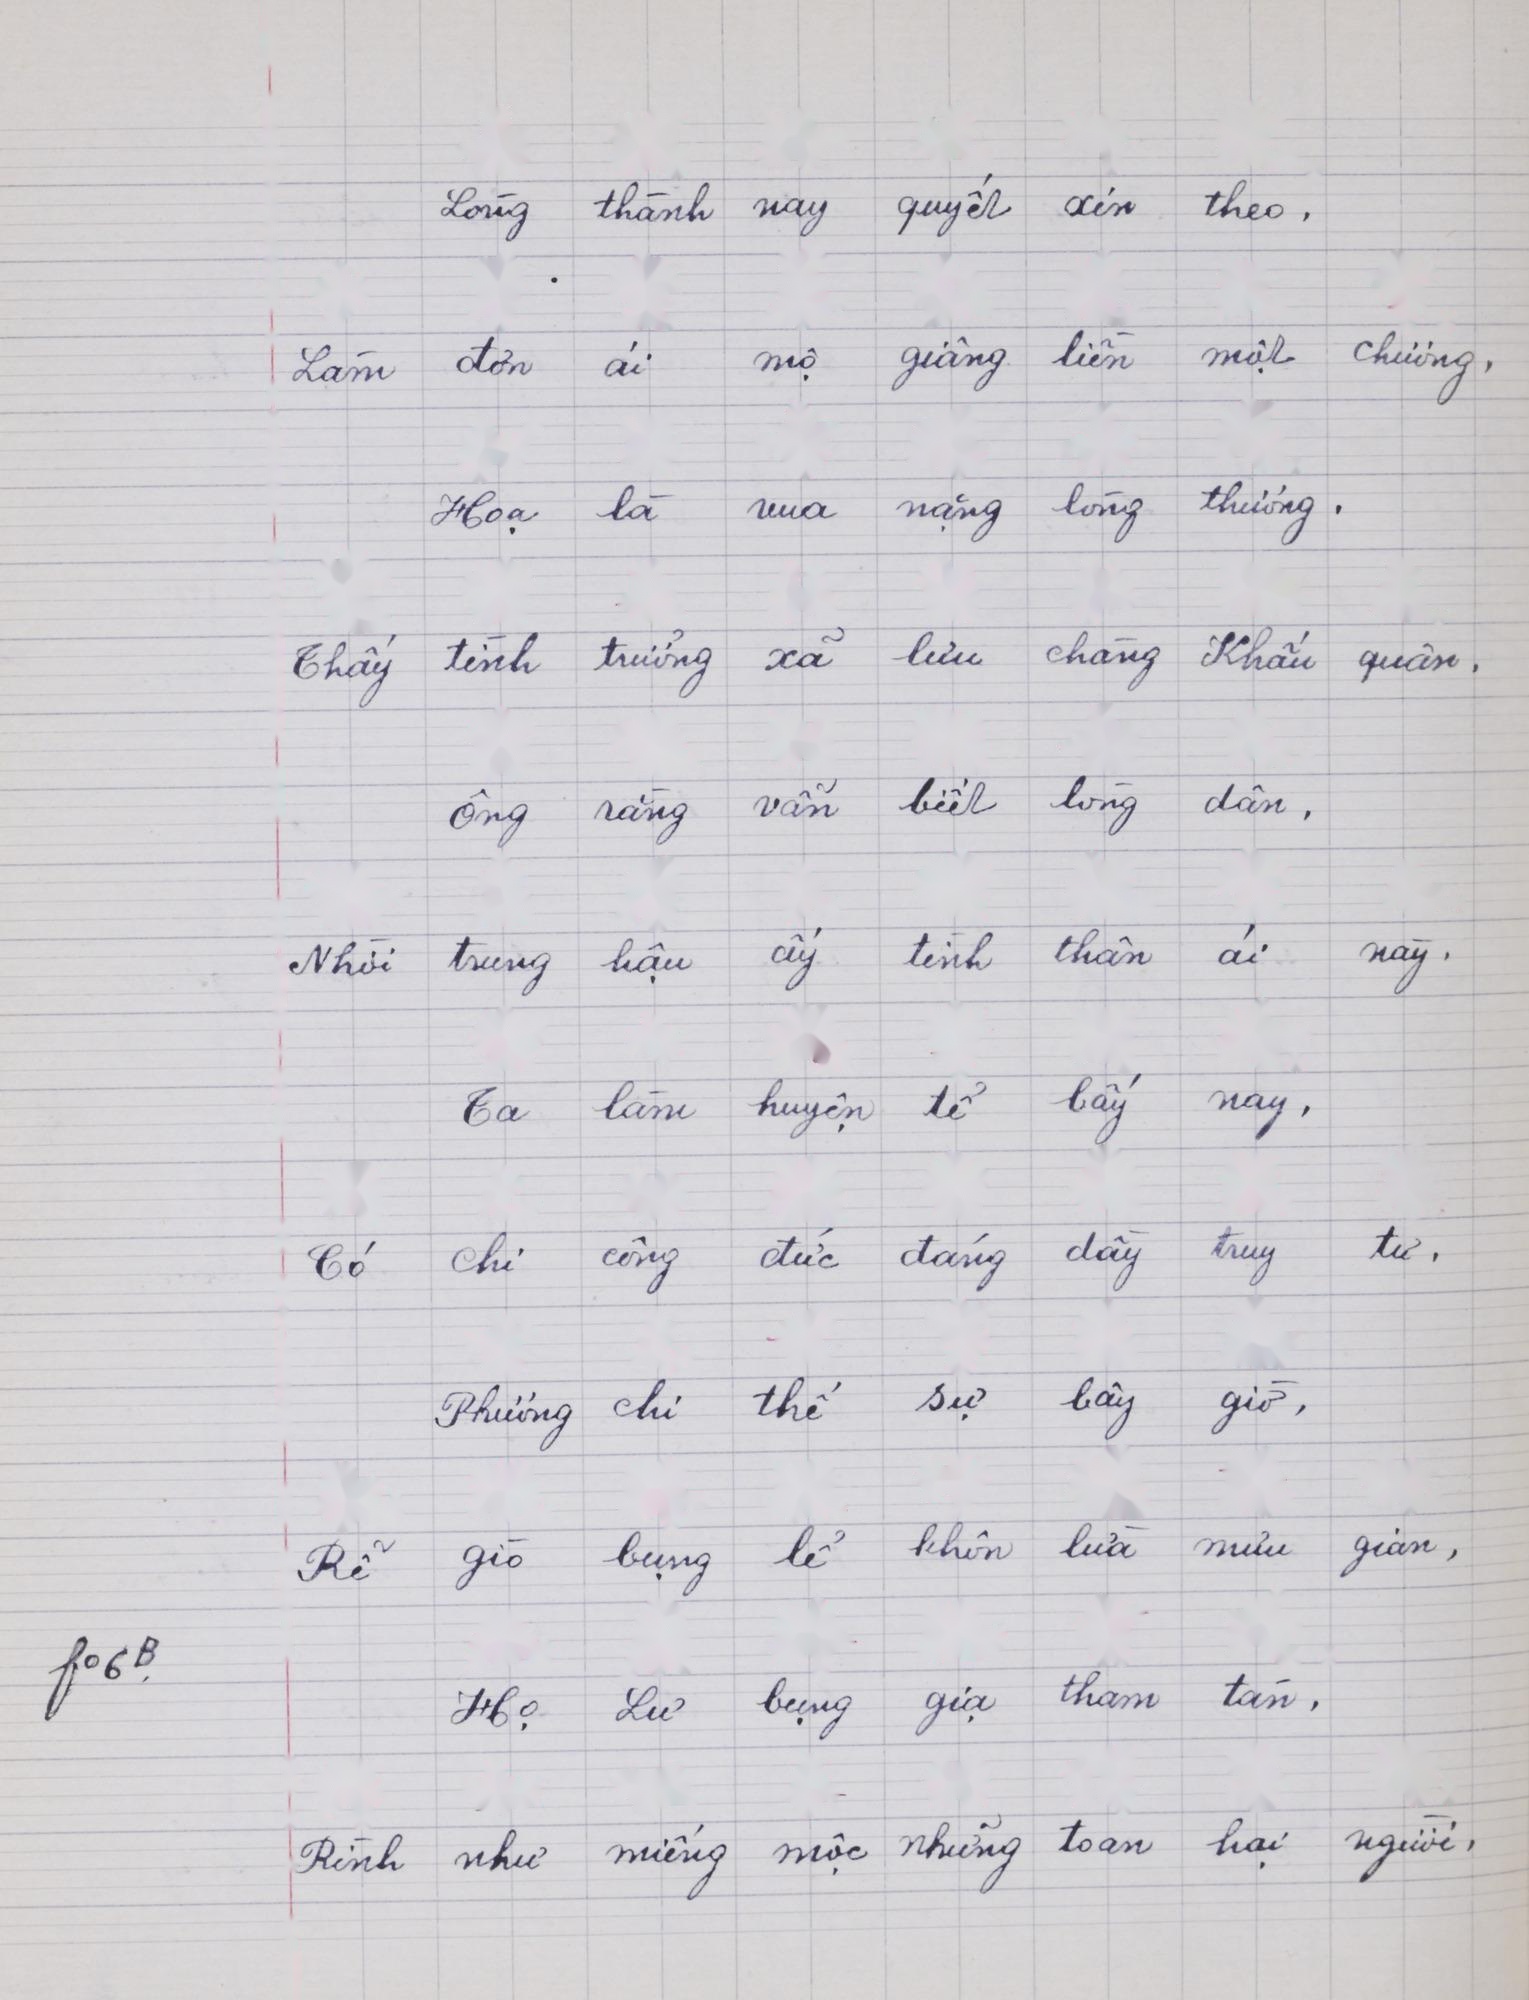 Lòng thành nay quyết xin theo,
Làm đơn ái mộ giâng liền một chương,
Hoạ là vua nặng lòng thương.
Thấy tình trưởng xã lưu chàng Khấu quân,
Ông rằng vẫn biết lòng dân,
Nhời trung hậu ấy tình thân ái này.
Ta làm huyện tể bấy nay,
Có chi công đức đáng dầy truy tư,
Phương chi thế sự bây giờ,
Rễ giò bụng lể khôn lừa mưu gian,
fo 6B.
Họ Lư bụng giạ tham tàn,
Rình như miếng mộc những toan hại người,